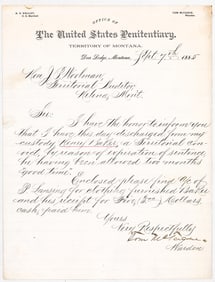 OFFICE OF
The United States Penitentiary,
TERRITORY OF MONTANA.
Deer Lodge, Montana, Sept 7th 1885
Hon. J. P. Woolman,
Territorial Auditor
Helena, Mont.
Sir:
I have the honor to inform you
that I have this day discharged from my
custody Henry Baker, a Territorial con-
vict, by reason of expiration of sentence,
he having been allowed two months
"good time".
Enclosed please find % of
P. Lansing for clothing furnished Baker
and his receipt for Five Dollars
cash paid him.
Yours
Very Respectfully
Tom McTague
Warden